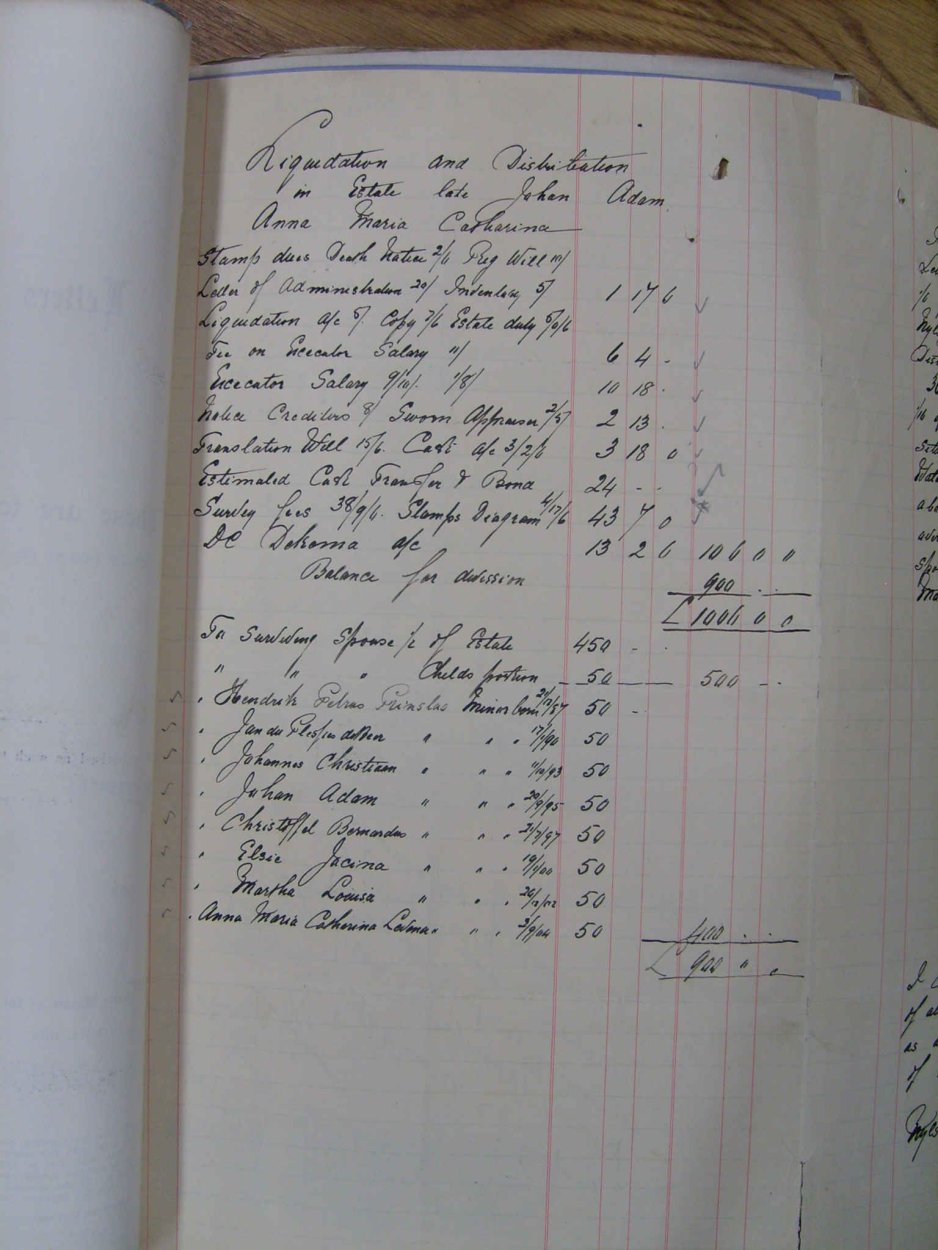 Liquidation and Distribution
in Estate late Johan Adam
Anna Maria Catharina
Stamp dues Death Notice 2/6 Reg Will 10/
Letter of Administration 20/ Inventory 5/ 1 17 6
Liquidation a/c 5/. Copy 7/6 Estate duty 5/9/6
Fee on Executor Salary 11/ 6 4 -
Executor Salary 9/10/. 1/8/ 10 18 -
Notice Creditors 8/ Sworn Appraiser 2/5/ 2 13 -
Translation Will 15/6. Cash a/c 3/2/6 3 18 0
Estimated Cost Transfer & Bond 24 - -
Survey fees 38/9/6. Stamps Diagram 4/17/6 43 7 0
DC Dekema a/c 13 2 6 106 0 0
Balance for division 900 . .
£ 1006 0 0
To Surviving Spouse ½ of Estate 450 - .
" " " Childs portion 50 — 500 - -
" Hendrik Petrus Prinslas Minor born 21/12/87 50 -
" Jan du Plessis " " " 17/1/90 50
" Johannes Christiaan " " " 11/10/93 50
" Johan Adam " " " 20/9/95 50
" Christoffel Bernardus " " " 21/7/97 50
" Elsie Jacina " " " 19/1/00 50
" Martha Louisa " " " 26/12/02 50
" Anna Maria Catharina " " " 2/9/04 50 400 . .
£ 900 " 0